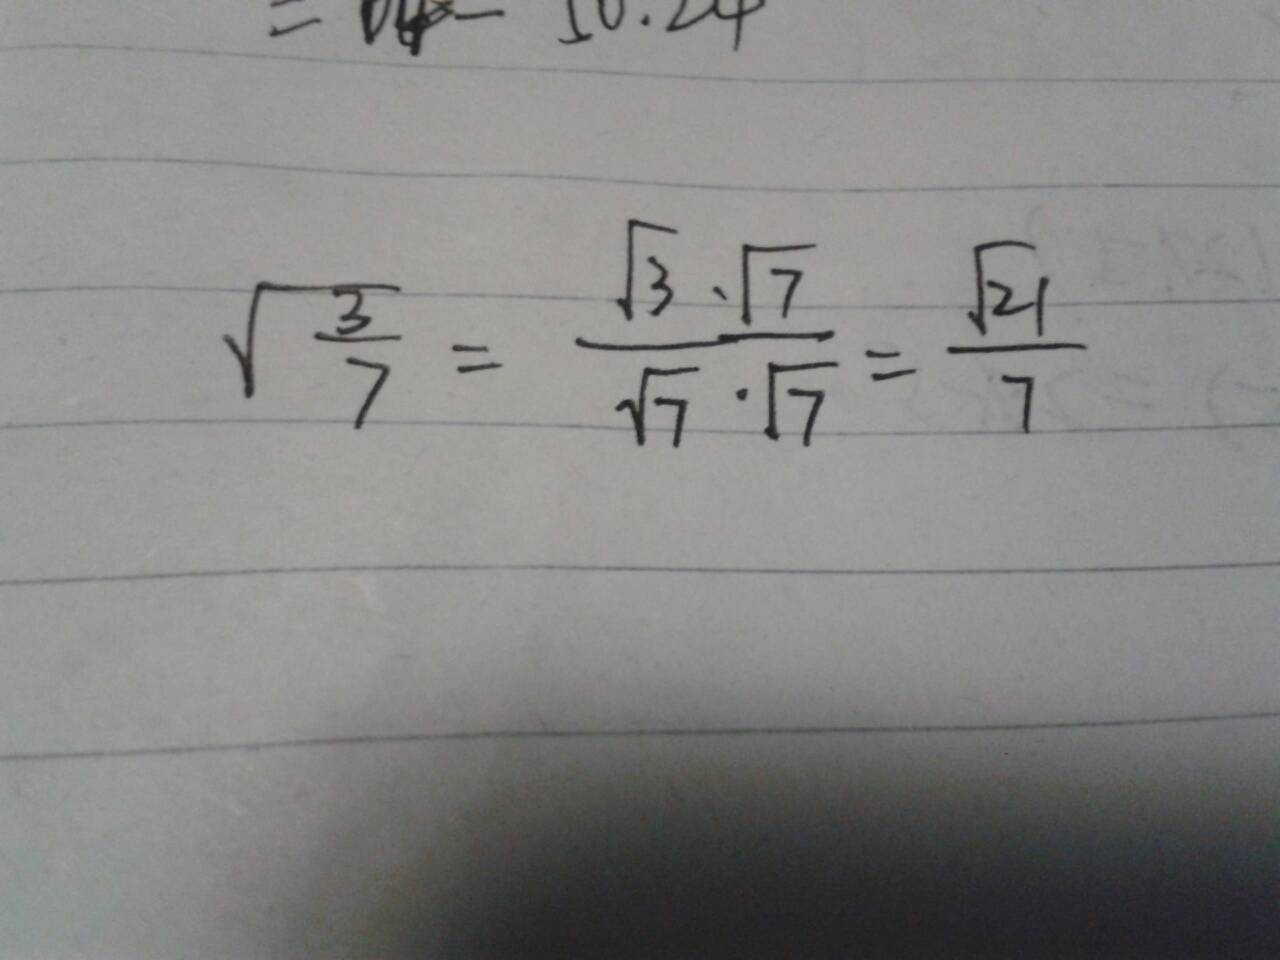 = 10.24
√(3/7) = (√3 · √7)/(√7 · √7) = √21/7